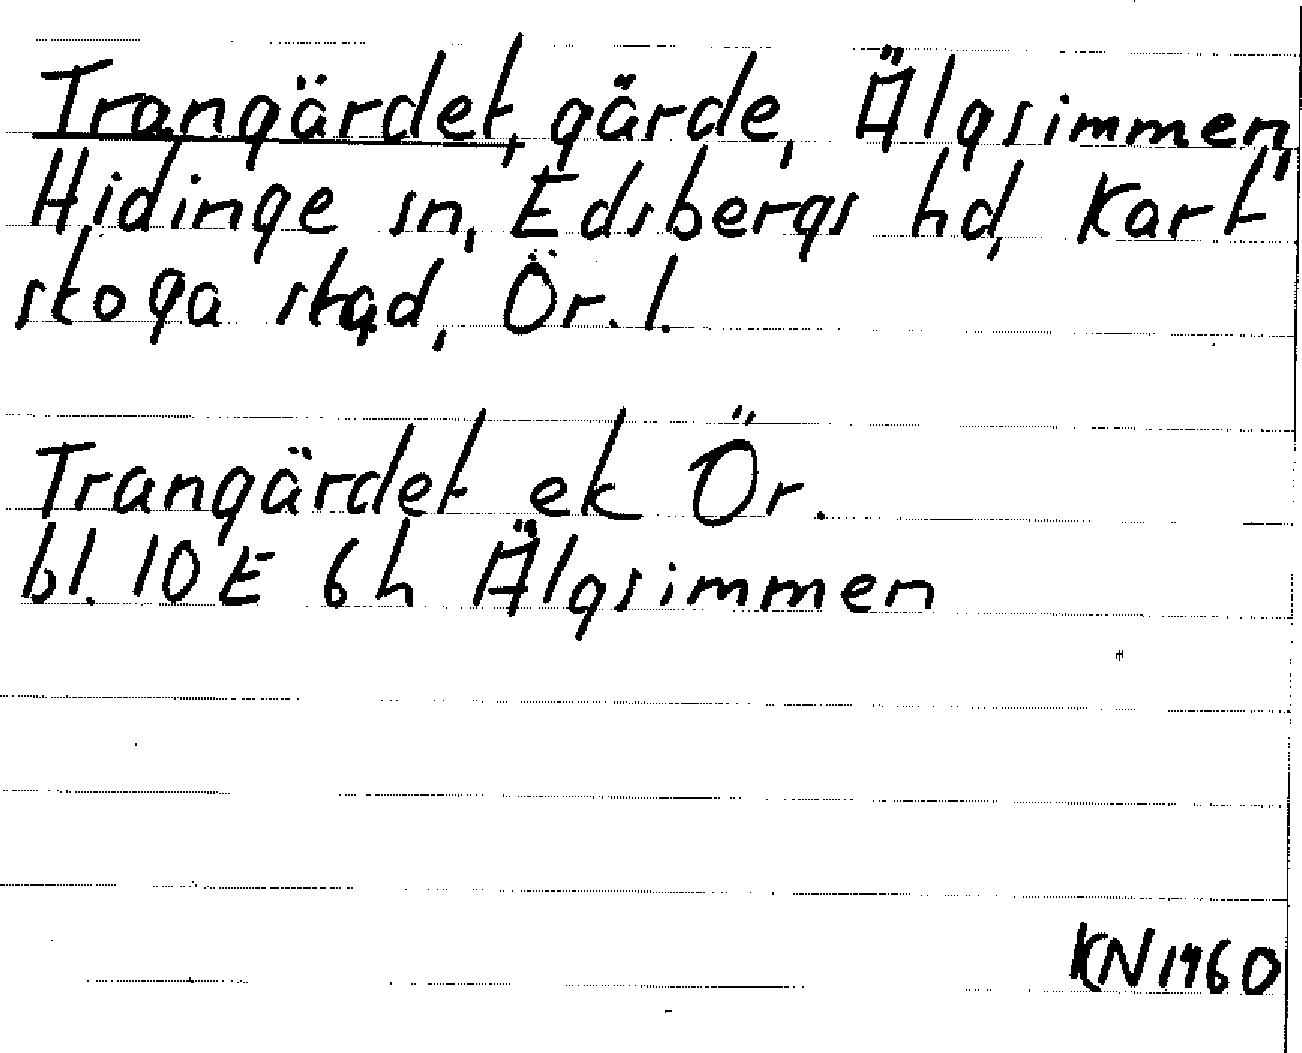 Trangärdet, gärde, Älgsimmen,
Hidinge sn, Edsbergs hd, Karl-
skoga stad, Ör. l.
Trangärdet ek Ör.
bl. 10 E 6 h Älgsimmen
KN 1960